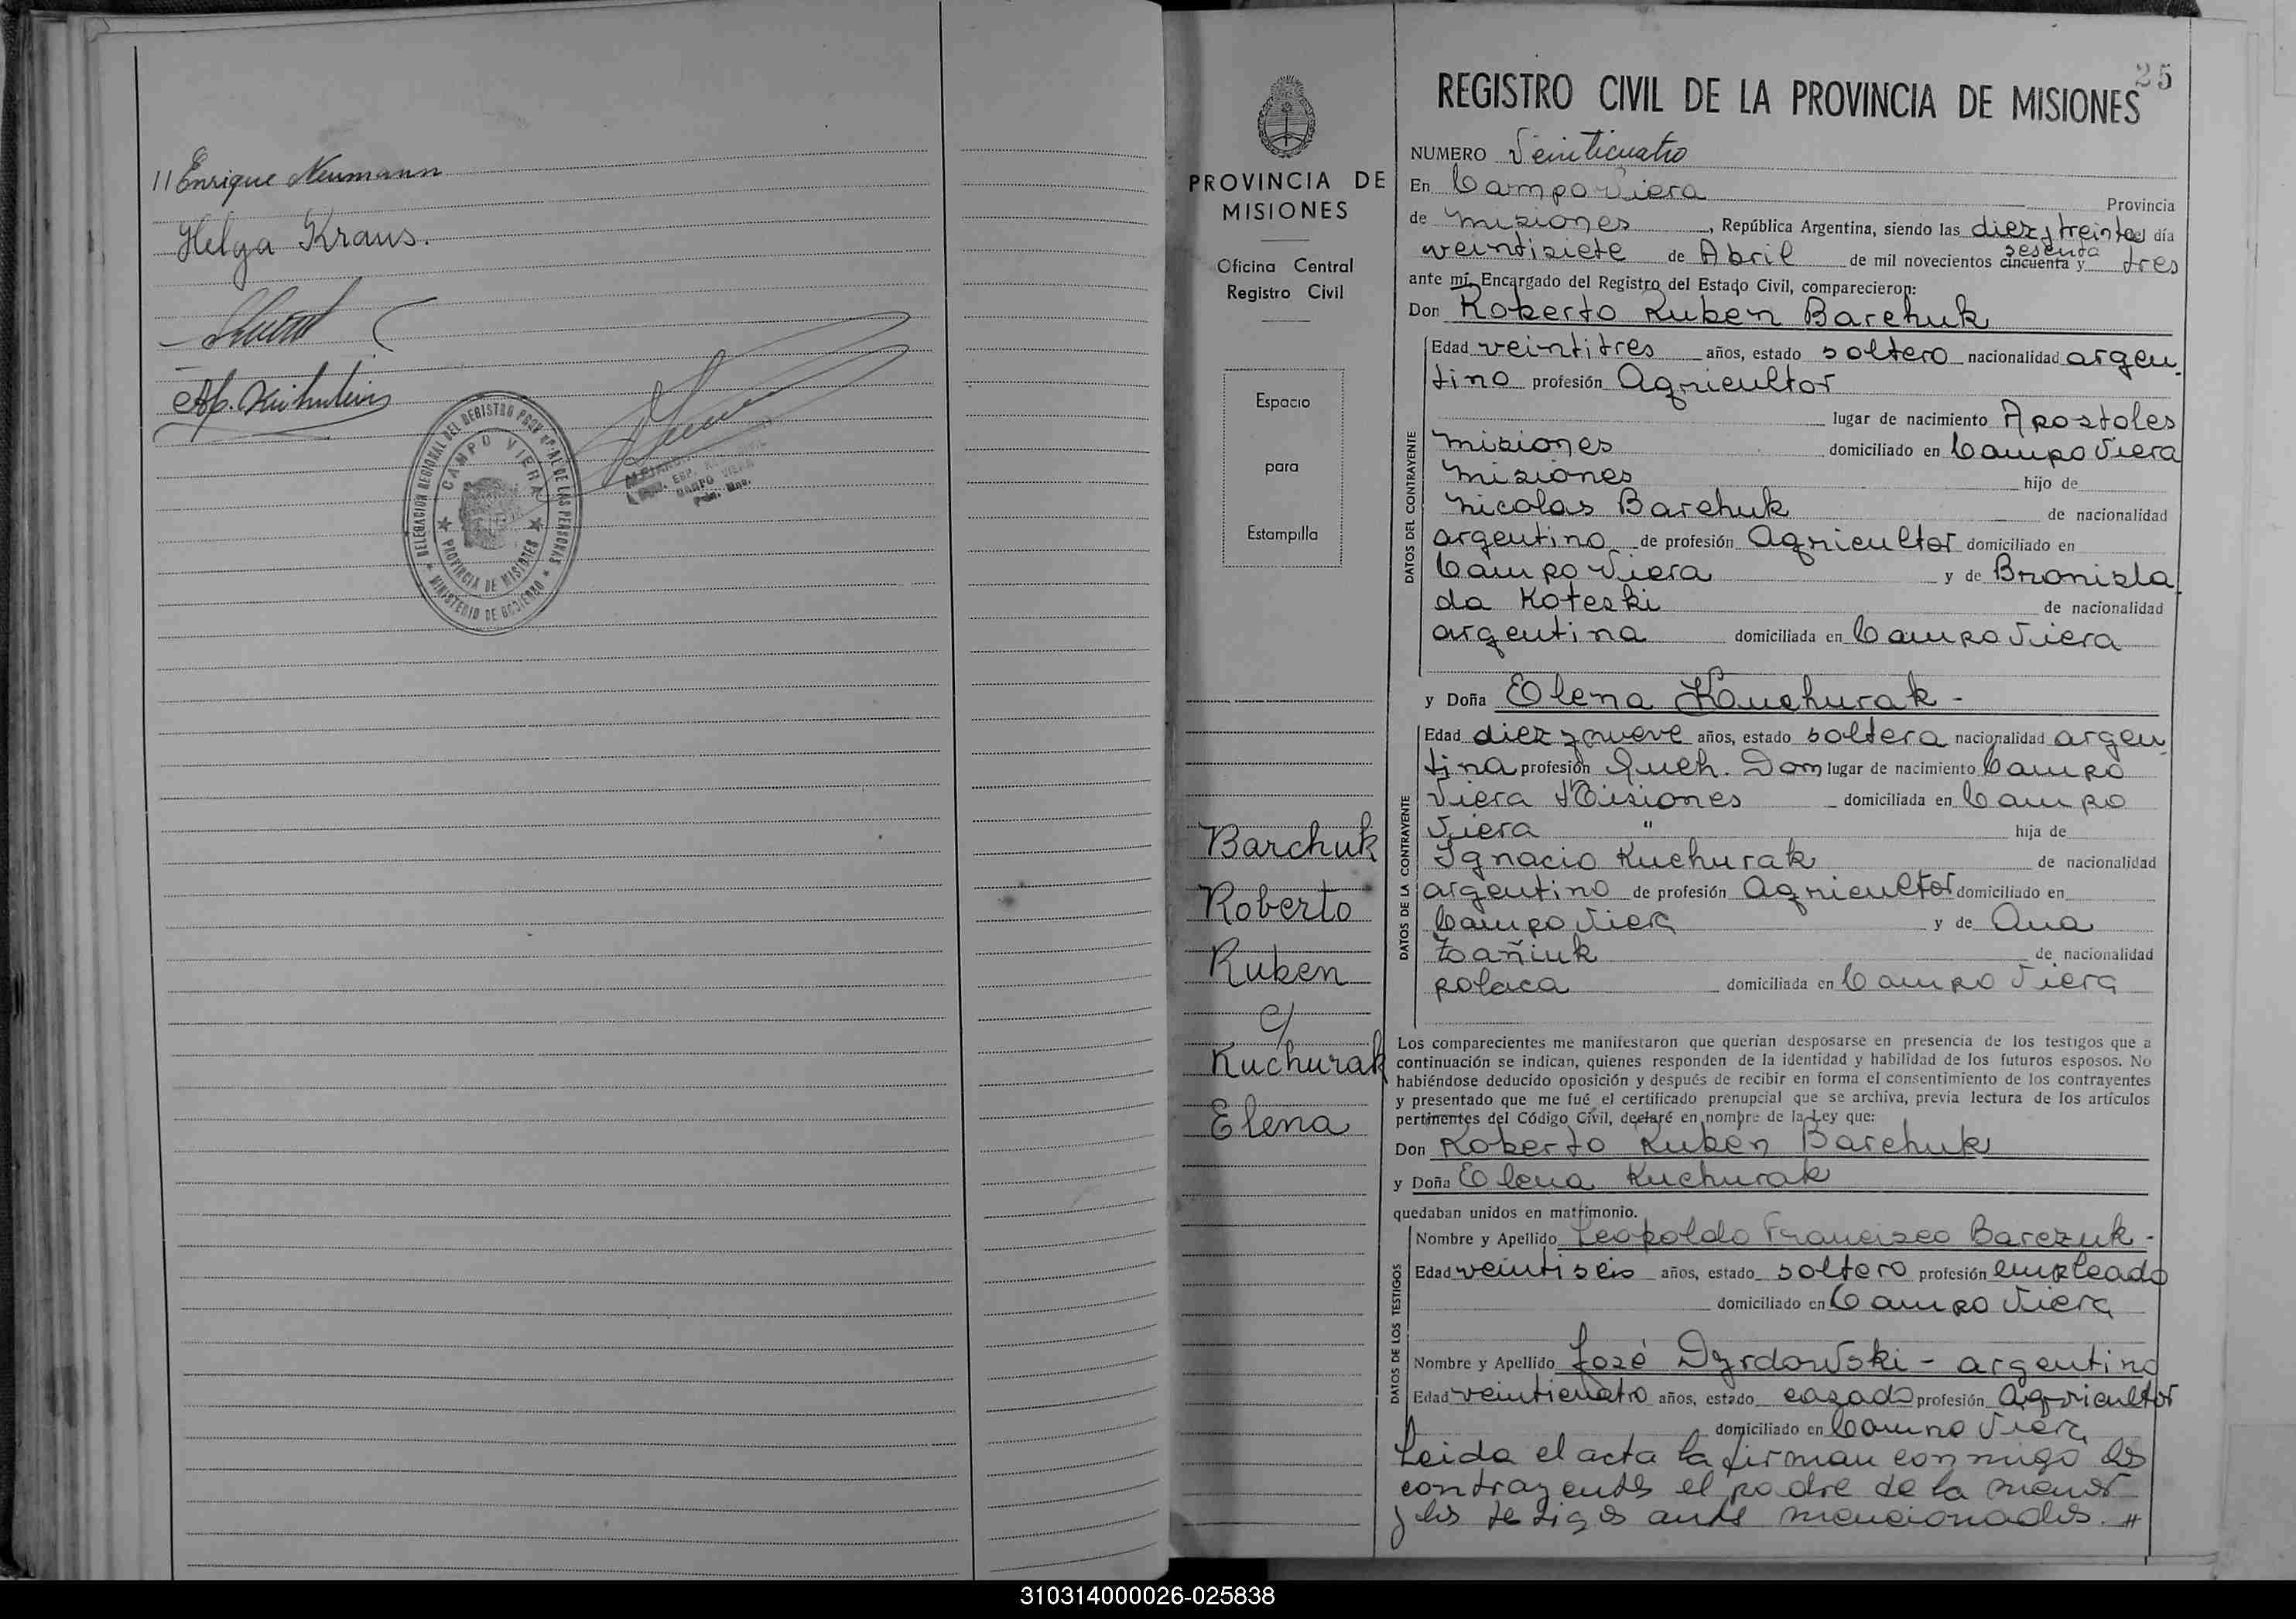 11 Enrique Neumann
Helga Kraus.
DELEGACION REGIONAL DEL REGISTRO PROVINCIAL DE LAS PERSONAS
CAMPO VIERA
PROVINCIA DE MISIONES
MINISTERIO DE GOBIERNO
CAMPO VIERA
PROVINCIA DE
MISIONES
Oficina Central
Registro Civil
Espacio
para
Estampilla
Barchuk
Roberto
Ruben
c/
Kuchurak
Elena
25
REGISTRO CIVIL DE LA PROVINCIA DE MISIONES
NUMERO Veinticuatro
En Campo Viera Provincia
de Misiones, República Argentina, siendo las diez y treinta del día
veintisiete de Abril de mil novecientos cincuenta y sesenta tres
ante mí, Encargado del Registro del Estado Civil, comparecieron:
Don Roberto Ruben Barchuk
DATOS DEL CONTRAYENTE
Edad veintitres años, estado soltero nacionalidad argen
tino profesión Agricultor
lugar de nacimiento Apostoles
Misiones domiciliado en Campo Viera
Misiones hijo de
Nicolas Barchuk de nacionalidad
argentino de profesión Agricultor domiciliado en
Campo Viera y de Bronisla
da Koteski de nacionalidad
argentina domiciliada en Campo Viera
y Doña Elena Kuchurak -
DATOS DE LA CONTRAYENTE
Edad diez y nueve años, estado soltera nacionalidad argen
tina profesión Queh. Dom lugar de nacimiento Campo
Viera Misiones domiciliada en Campo
Viera " hija de
Ignacio Kuchurak de nacionalidad
argentino de profesión Agricultor domiciliado en
Campo Viera y de Ana
Zañiuk de nacionalidad
polaca domiciliada en Campo Viera
Los comparecientes me manifestaron que querían desposarse en presencia de los testigos que a
continuación se indican, quienes responden de la identidad y habilidad de los futuros esposos. No
habiéndose deducido oposición y después de recibir en forma el consentimiento de los contrayentes
y presentado que me fué el certificado prenupcial que se archiva, previa lectura de los artículos
pertinentes del Código Civil, declaré en nombre de la Ley que:
Don Roberto Ruben Barchuk
y Doña Elena Kuchurak
quedaban unidos en matrimonio.
DATOS DE LOS TESTIGOS
Nombre y Apellido Leopoldo Francisco Barczuk -
Edad veintiseis años, estado soltero profesión empleado
domiciliado en Campo Viera
Nombre y Apellido José Dyrdowski - argentino
Edad veinticuatro años, estado casado profesión Agricultor
domiciliado en Campo Viera
Leida el acta la firman conmigo los
contrayentes el padre de la menor
y los testigos ante mencionados. "
310314000026-025838